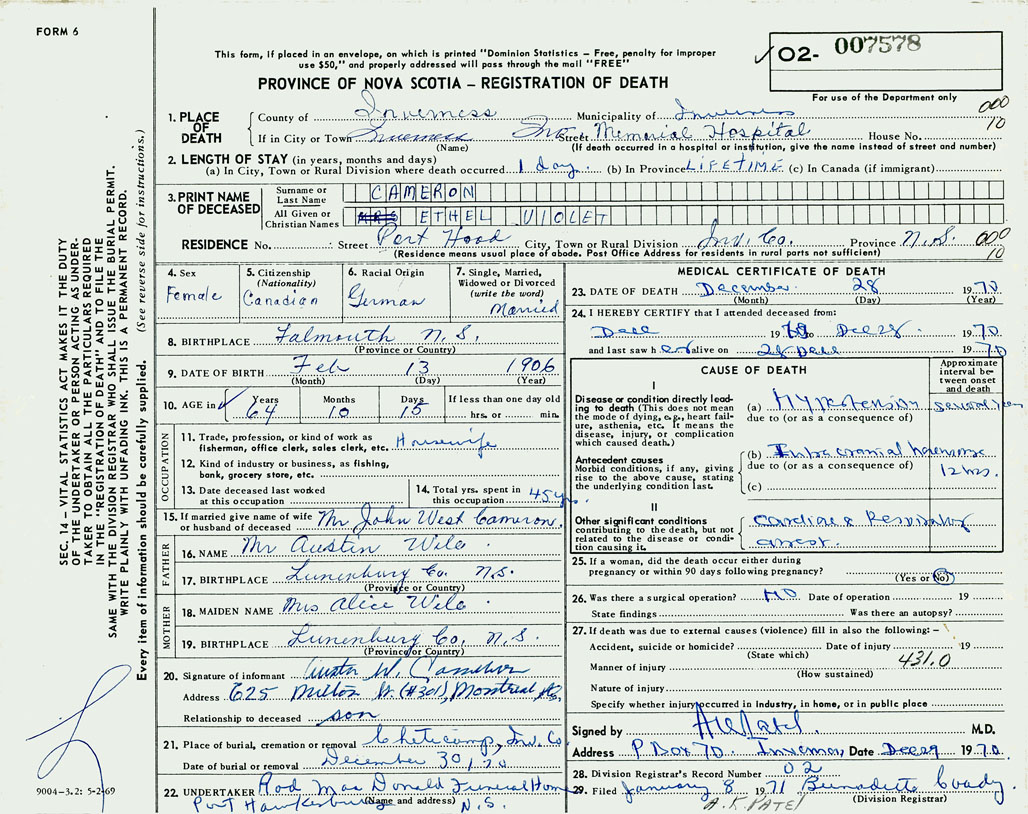 FORM 6
O2- 007578
This form, if placed in an envelope, on which is printed "Dominion Statistics – Free, penalty for improper
use $50," and properly addressed will pass through the mail "FREE"
PROVINCE OF NOVA SCOTIA – REGISTRATION OF DEATH
For use of the Department only
1. PLACE OF DEATH
County of Inverness Municipality of Inverness 000
If in City or Town Inverness Street Memorial Hospital House No. 10
(Name) (If death occurred in a hospital or institution, give the name instead of street and number)
2. LENGTH OF STAY (in years, months and days)
(a) In City, Town or Rural Division where death occurred 1 day (b) In Province LIFETIME (c) In Canada (if immigrant)
3. PRINT NAME OF DECEASED
Surname or Last Name CAMERON
All Given or Christian Names MRS ETHEL VIOLET
RESIDENCE No. Street Port Hood City, Town or Rural Division Inv. Co. Province N.S. 000
(Residence means usual place of abode. Post Office Address for residents in rural parts not sufficient) 10
4. Sex
Female
5. Citizenship
(Nationality)
Canadian
6. Racial Origin
German
7. Single, Married, Widowed or Divorced
(write the word)
Married
8. BIRTHPLACE Falmouth N.S.
(Province or Country)
9. DATE OF BIRTH Feb 13 1906
(Month) (Day) (Year)
10. AGE in Years Months Days If less than one day old
64 10 15 hrs. or min.
OCCUPATION
11. Trade, profession, or kind of work as Housewife
fisherman, office clerk, sales clerk, etc.
12. Kind of industry or business, as fishing,
bank, grocery store, etc.
13. Date deceased last worked
at this occupation
14. Total yrs. spent in
this occupation 45 yrs.
15. If married give name of wife
or husband of deceased Mr John West Cameron.
FATHER
16. NAME Mr Austin Wile
17. BIRTHPLACE Lunenburg Co. N.S.
(Province or Country)
MOTHER
18. MAIDEN NAME Mrs Alice Wile
19. BIRTHPLACE Lunenburg Co. N.S.
(Province/or Country)
20. Signature of informant Austin W. Cameron
Address 625 Milton St (#301), Montreal,
Relationship to deceased son
21. Place of burial, cremation or removal Cheticamp, Inv. Co
Date of burial or removal December 30 / 70
22. UNDERTAKER Rod Mac Donald Funeral Home
Port Hawkesbury (Name and address) N.S.
MEDICAL CERTIFICATE OF DEATH
23. DATE OF DEATH December 28 1970
(Month) (Day) (Year)
24. I HEREBY CERTIFY that I attended deceased from:
19 to Dec 28 1970
and last saw her alive on 28 Dec 1970
CAUSE OF DEATH
Approximate interval between onset and death
I
Disease or condition directly leading to death (This does not mean the mode of dying, e.g., heart failure, asthenia, etc. It means the disease, injury, or complication which caused death.)
(a) Hypertension several years
due to (or as a consequence of)
Antecedent causes
Morbid conditions, if any, giving rise to the above cause, stating the underlying condition last.
(b) Intra cranial haemorrhage
due to (or as a consequence of) 12 hrs.
(c)
II
Other significant conditions
contributing to the death, but not related to the disease or condition causing it.
Cardiac & Respiratory
arrest.
25. If a woman, did the death occur either during
pregnancy or within 90 days following pregnancy?
(Yes or No)
26. Was there a surgical operation? No Date of operation 19
State findings Was there an autopsy?
27. If death was due to external causes (violence) fill in also the following: –
Accident, suicide or homicide? Date of injury 19
(State which) 431.0
Manner of injury
(How sustained)
Nature of injury
Specify whether injury occurred in industry, in home, or in public place
Signed by A K Patel M.D.
Address P Box 70. Inverness, Date Dec 29 1970.
28. Division Registrar's Record Number 02
29. Filed January 8 1971 Bernadette Coady
A.K. PATEL (Division Registrar)
SEC. 14 – VITAL STATISTICS ACT MAKES IT THE DUTY
OF THE UNDERTAKER OR PERSON ACTING AS UNDER-
TAKER TO OBTAIN ALL THE PARTICULARS REQUIRED
IN THE "REGISTRATION OF DEATH" AND TO FILE THE
SAME WITH THE DIVISION REGISTRAR WHO SHALL ISSUE THE BURIAL PERMIT.
WRITE PLAINLY WITH UNFADING INK. THIS IS A PERMANENT RECORD.
Every item of information should be carefully supplied. (See reverse side for instructions.)
9004-3.2: 5-2-69